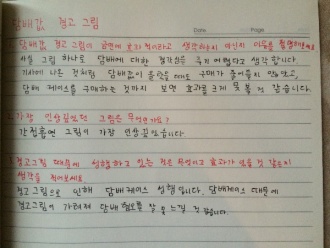 담배값 경고 그림
Date Page
담배값 경고 그림이 금연에 효과적이라고 생각하는지 아닌지 이유를
사실 그림 하나로 담배에 대한 경각심을 주기 어렵다고 생각합니다.
기사에 나온 것처럼 담배값이 올랐을 때도 구매가 줄어들지 않았고,
담배 케이스를 구매하는 것까지 보면 효과를 크게 못볼 것 같습니다.
가장 인상깊었던 그림은 무엇인가요?
간접흡연 그림이 가장 인상깊었습니다.
경고그림 때문에 성행하고 있는 것은 무엇이고 효과가 있을 것 같은지
생각을 적어보세요
경고그림으로 인해 담배케이스 성행입니다. 담배케이스 때문에
경고그림이 가려져 담배 잘 못 느낄 것 같습니다.